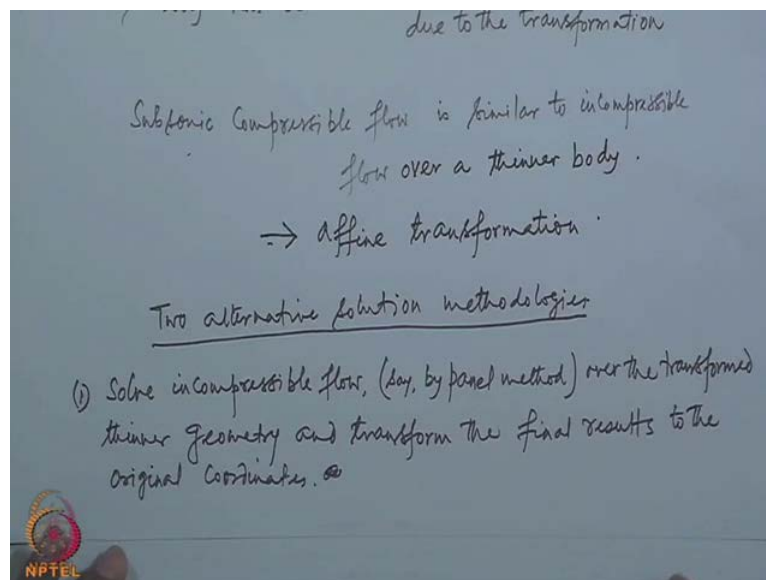 due to the transformation
Subsonic Compressible flow is similar to incompressible
flow over a thinner body.
→ Affine transformation.
Two alternative solution methodologies
(1) Solve incompressible flow, (say, by panel method) over the transformed
thinner geometry and transform the final results to the
original coordinates.
NPTEL